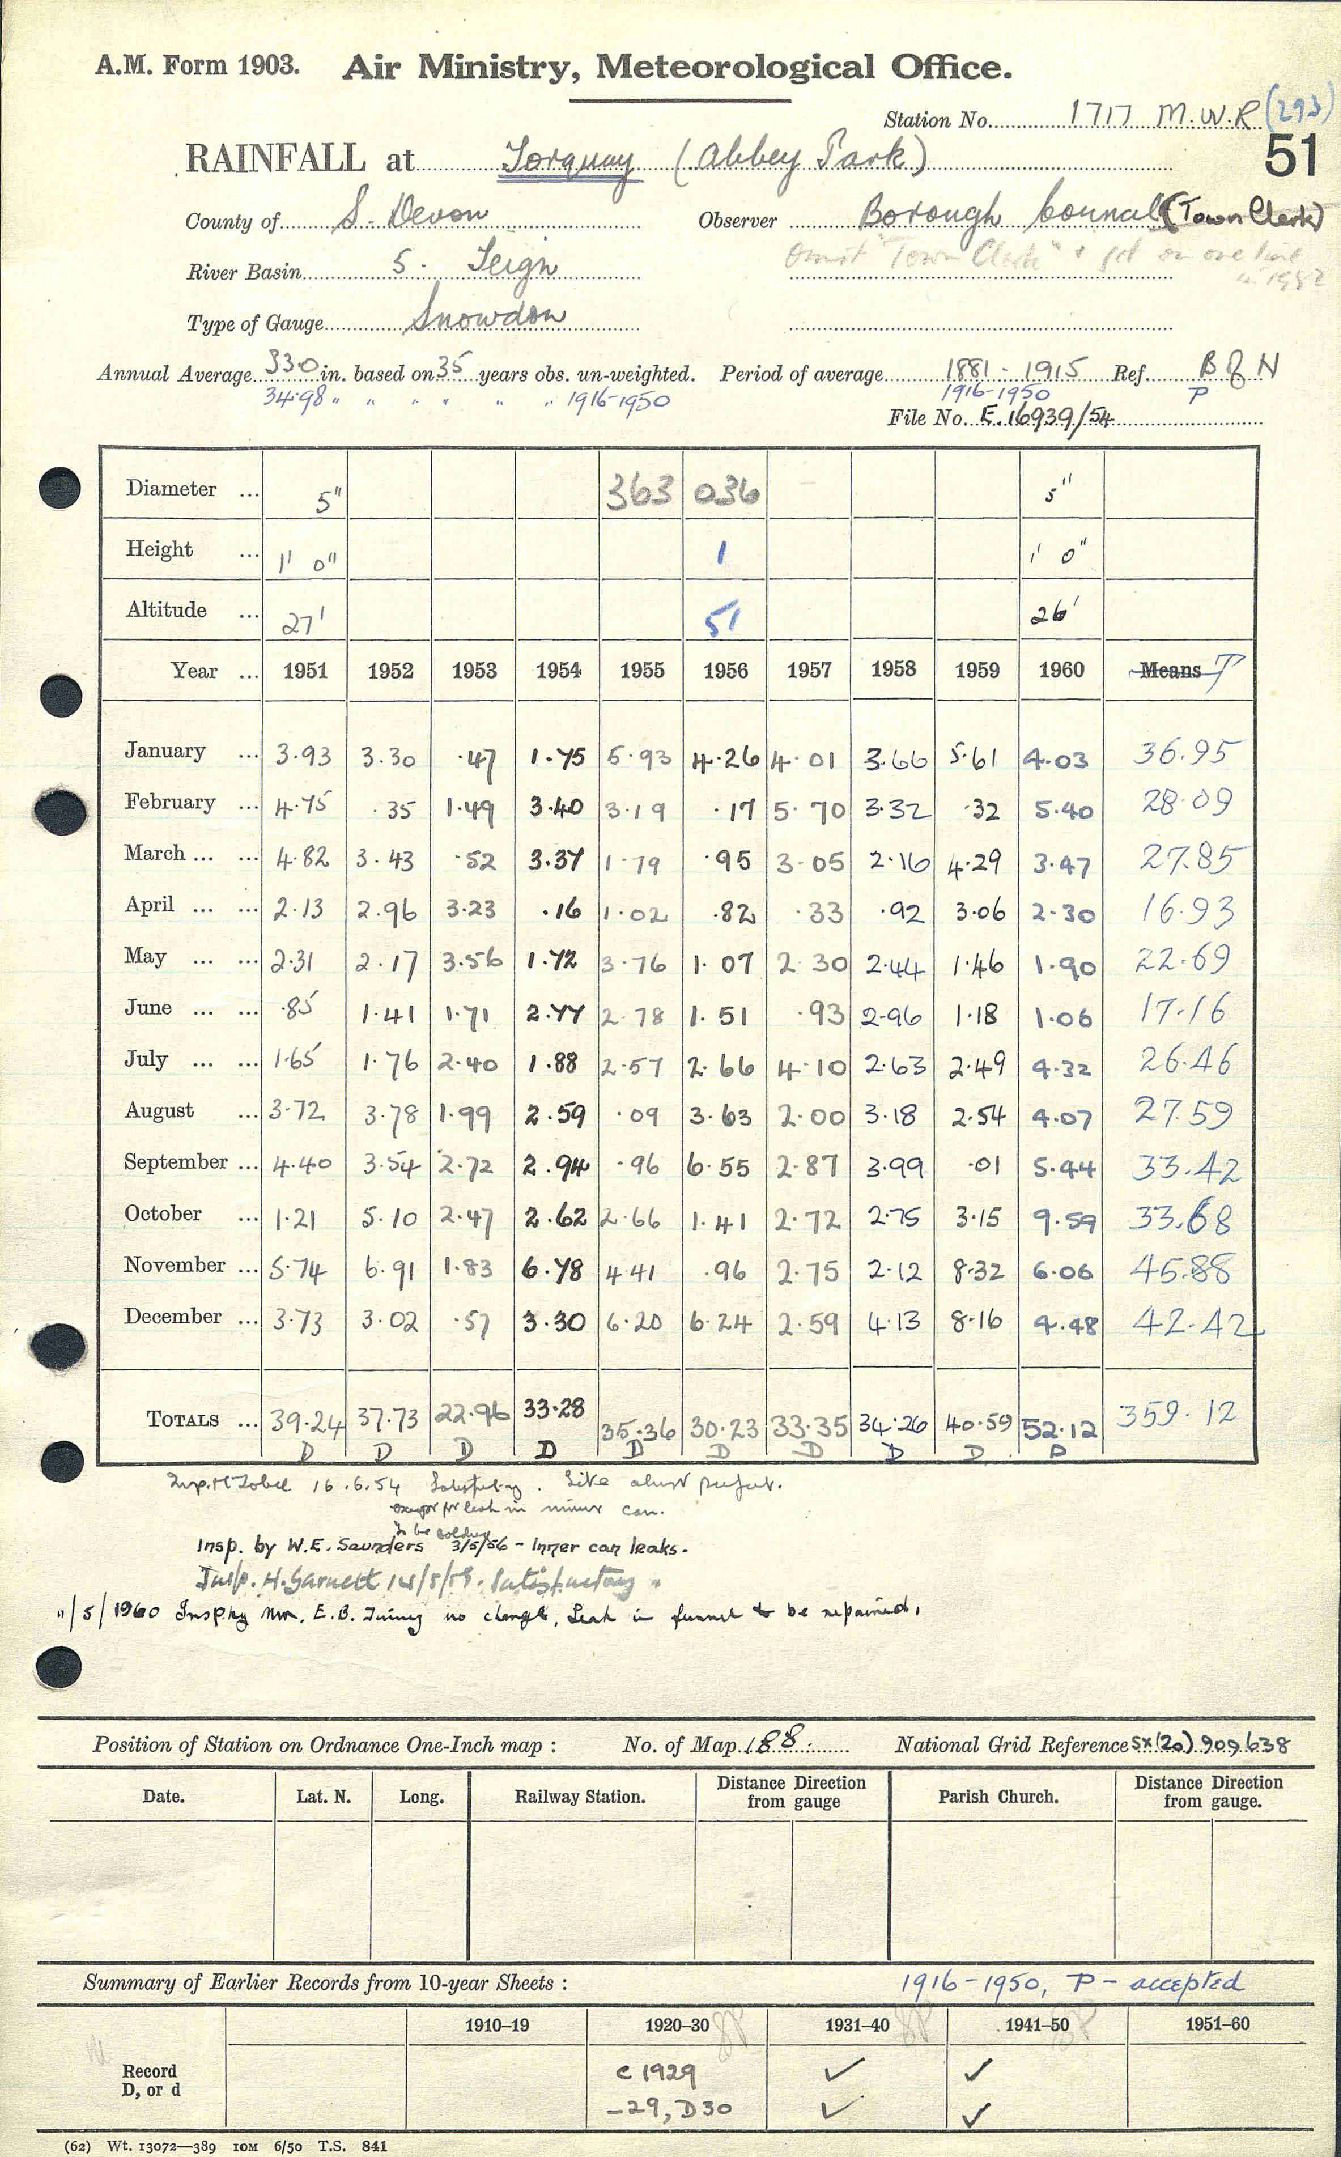 A.M. Form 1903. Air Ministry, Meteorological Office.
Station No. 1717 M.W.R (293)
51
RAINFALL at Torquay (Abbey Park)
County of S. Devon Observer Borough Council (Town Clerk)
Omit "Town Clerk" + get on one line in 1982
River Basin 5. Teign
Type of Gauge Snowdon
Annual Average 33.0 in. based on 35 years obs. un-weighted. Period of average 1881 - 1915 Ref. B of N
34.98 " " " " " " 1916-1950 1916-1950 P
File No. E.16939/54
Diameter ... 5" 363 036 5"
Height ... 1' 0" 1 1' 0"
Altitude ... 27' 51 26'
Year ... 1951 1952 1953 1954 1955 1956 1957 1958 1959 1960 Means T
January ... 3.93 3.30 .47 1.75 5.93 4.26 4.01 3.66 5.61 4.03 36.95
February ... 4.75 .35 1.49 3.40 3.19 .17 5.70 3.32 .32 5.40 28.09
March ... ... 4.82 3.43 .52 3.37 1.79 .95 3.05 2.16 4.29 3.47 27.85
April ... ... 2.13 2.96 3.23 .16 1.02 .82 .33 .92 3.06 2.30 16.93
May ... ... 2.31 2.17 3.56 1.72 3.76 1.07 2.30 2.44 1.46 1.90 22.69
June ... ... .85 1.41 1.71 2.77 2.78 1.51 .93 2.96 1.18 1.06 17.16
July ... ... 1.65 1.76 2.40 1.88 2.57 2.66 4.10 2.63 2.49 4.32 26.46
August ... 3.72 3.78 1.99 2.59 .09 3.63 2.00 3.18 2.54 4.07 27.59
September ... 4.40 3.54 2.72 2.94 .96 6.55 2.87 3.99 .01 5.44 33.42
October ... 1.21 5.10 2.47 2.62 2.66 1.41 2.72 2.75 3.15 9.59 33.68
November ... 5.74 6.91 1.83 6.78 4.41 .96 2.75 2.12 8.32 6.06 45.88
December ... 3.73 3.02 .57 3.30 6.20 6.24 2.59 4.13 8.16 4.48 42.42
TOTALS ... 39.24 37.73 22.96 33.28 35.36 30.23 33.35 34.26 40.59 52.12 359.12
D D D D D D D D D D
Insp. 16.6.54 Satisfactory. Site almost perfect.
except for leak in inner can.
To be soldered
Insp. by W.E. Saunders 3/5/56 - Inner can leaks.
Insp. H. Garnett 14/5/58. Satisfactory
11/5/1960 Insp by Mr. E.B. no change, Leak in funnel to be repaired.
Position of Station on Ordnance One-Inch map : No. of Map 188. National Grid Reference SX(20) 909638
Date. Lat. N. Long. Railway Station. Distance Direction from gauge Parish Church. Distance Direction from gauge.
Summary of Earlier Records from 10-year Sheets : 1916-1950, P - accepted
1910–19 1920–30 1931–40 1941–50 1951–60
Record c 1929 ✓ ✓
D, or d -29, D30 ✓ ✓
(62) Wt. 13072—389 10M 6/50 T.S. 841